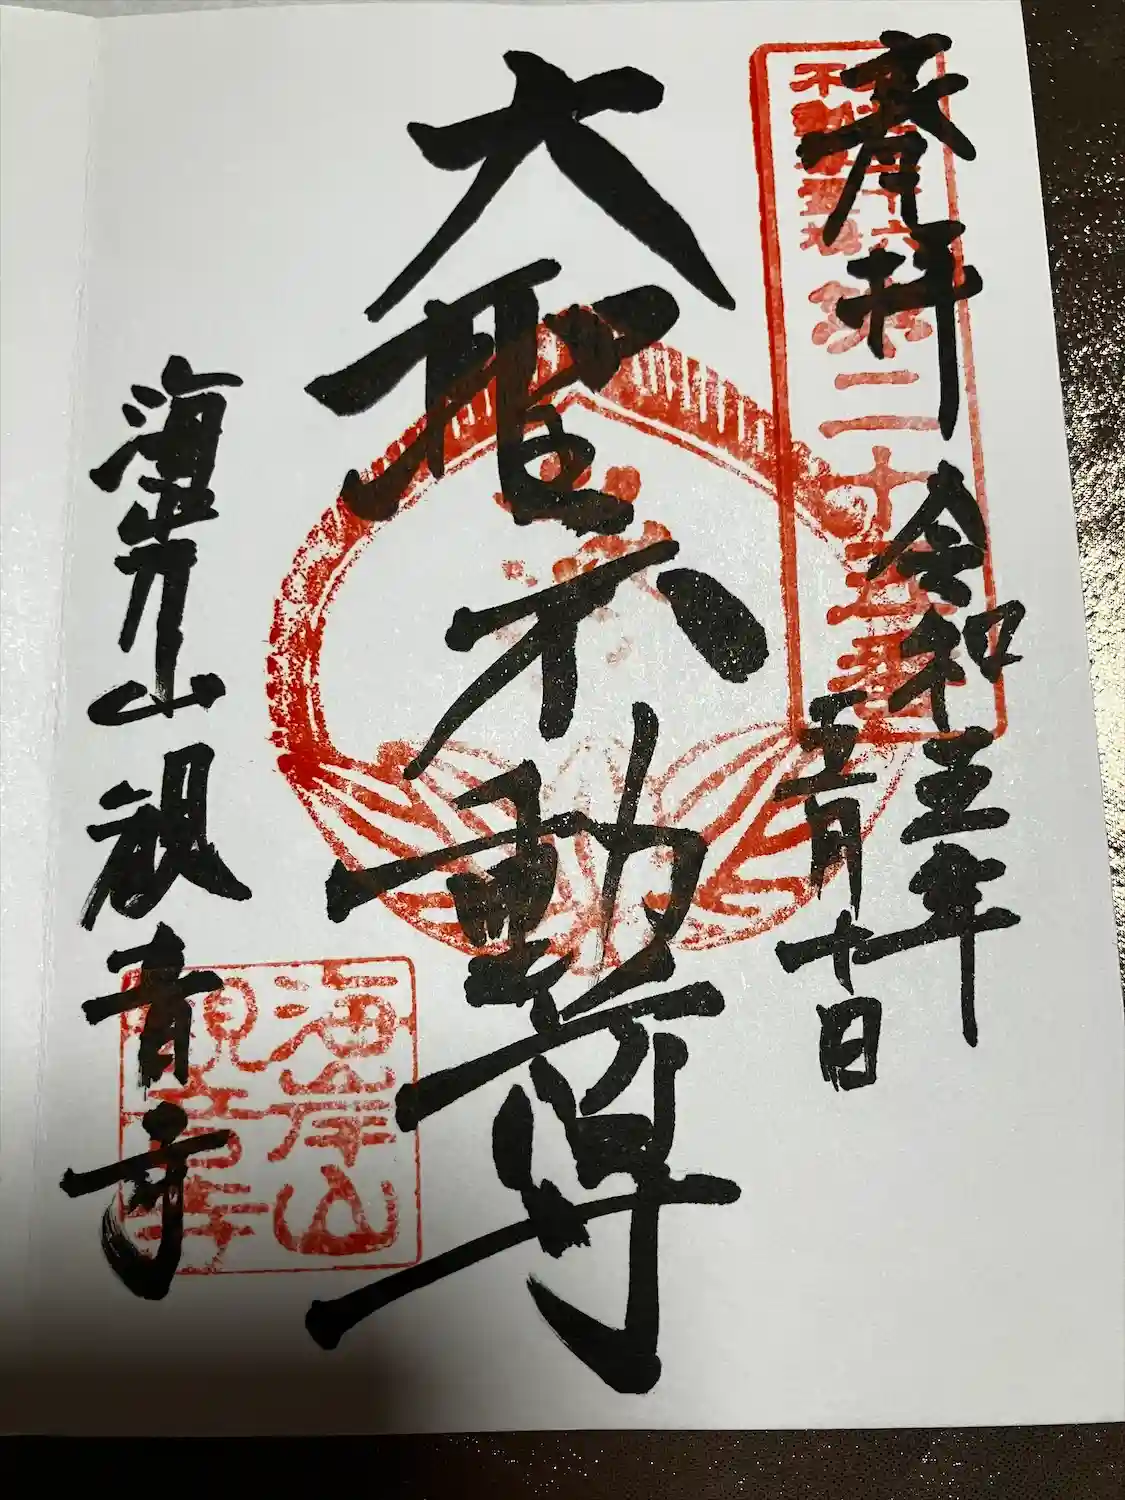 奉拝
令和五年
五月十日
不動尊霊場
第二十五番
大聖不動尊
海岸山 観音寺
海岸山
観音寺